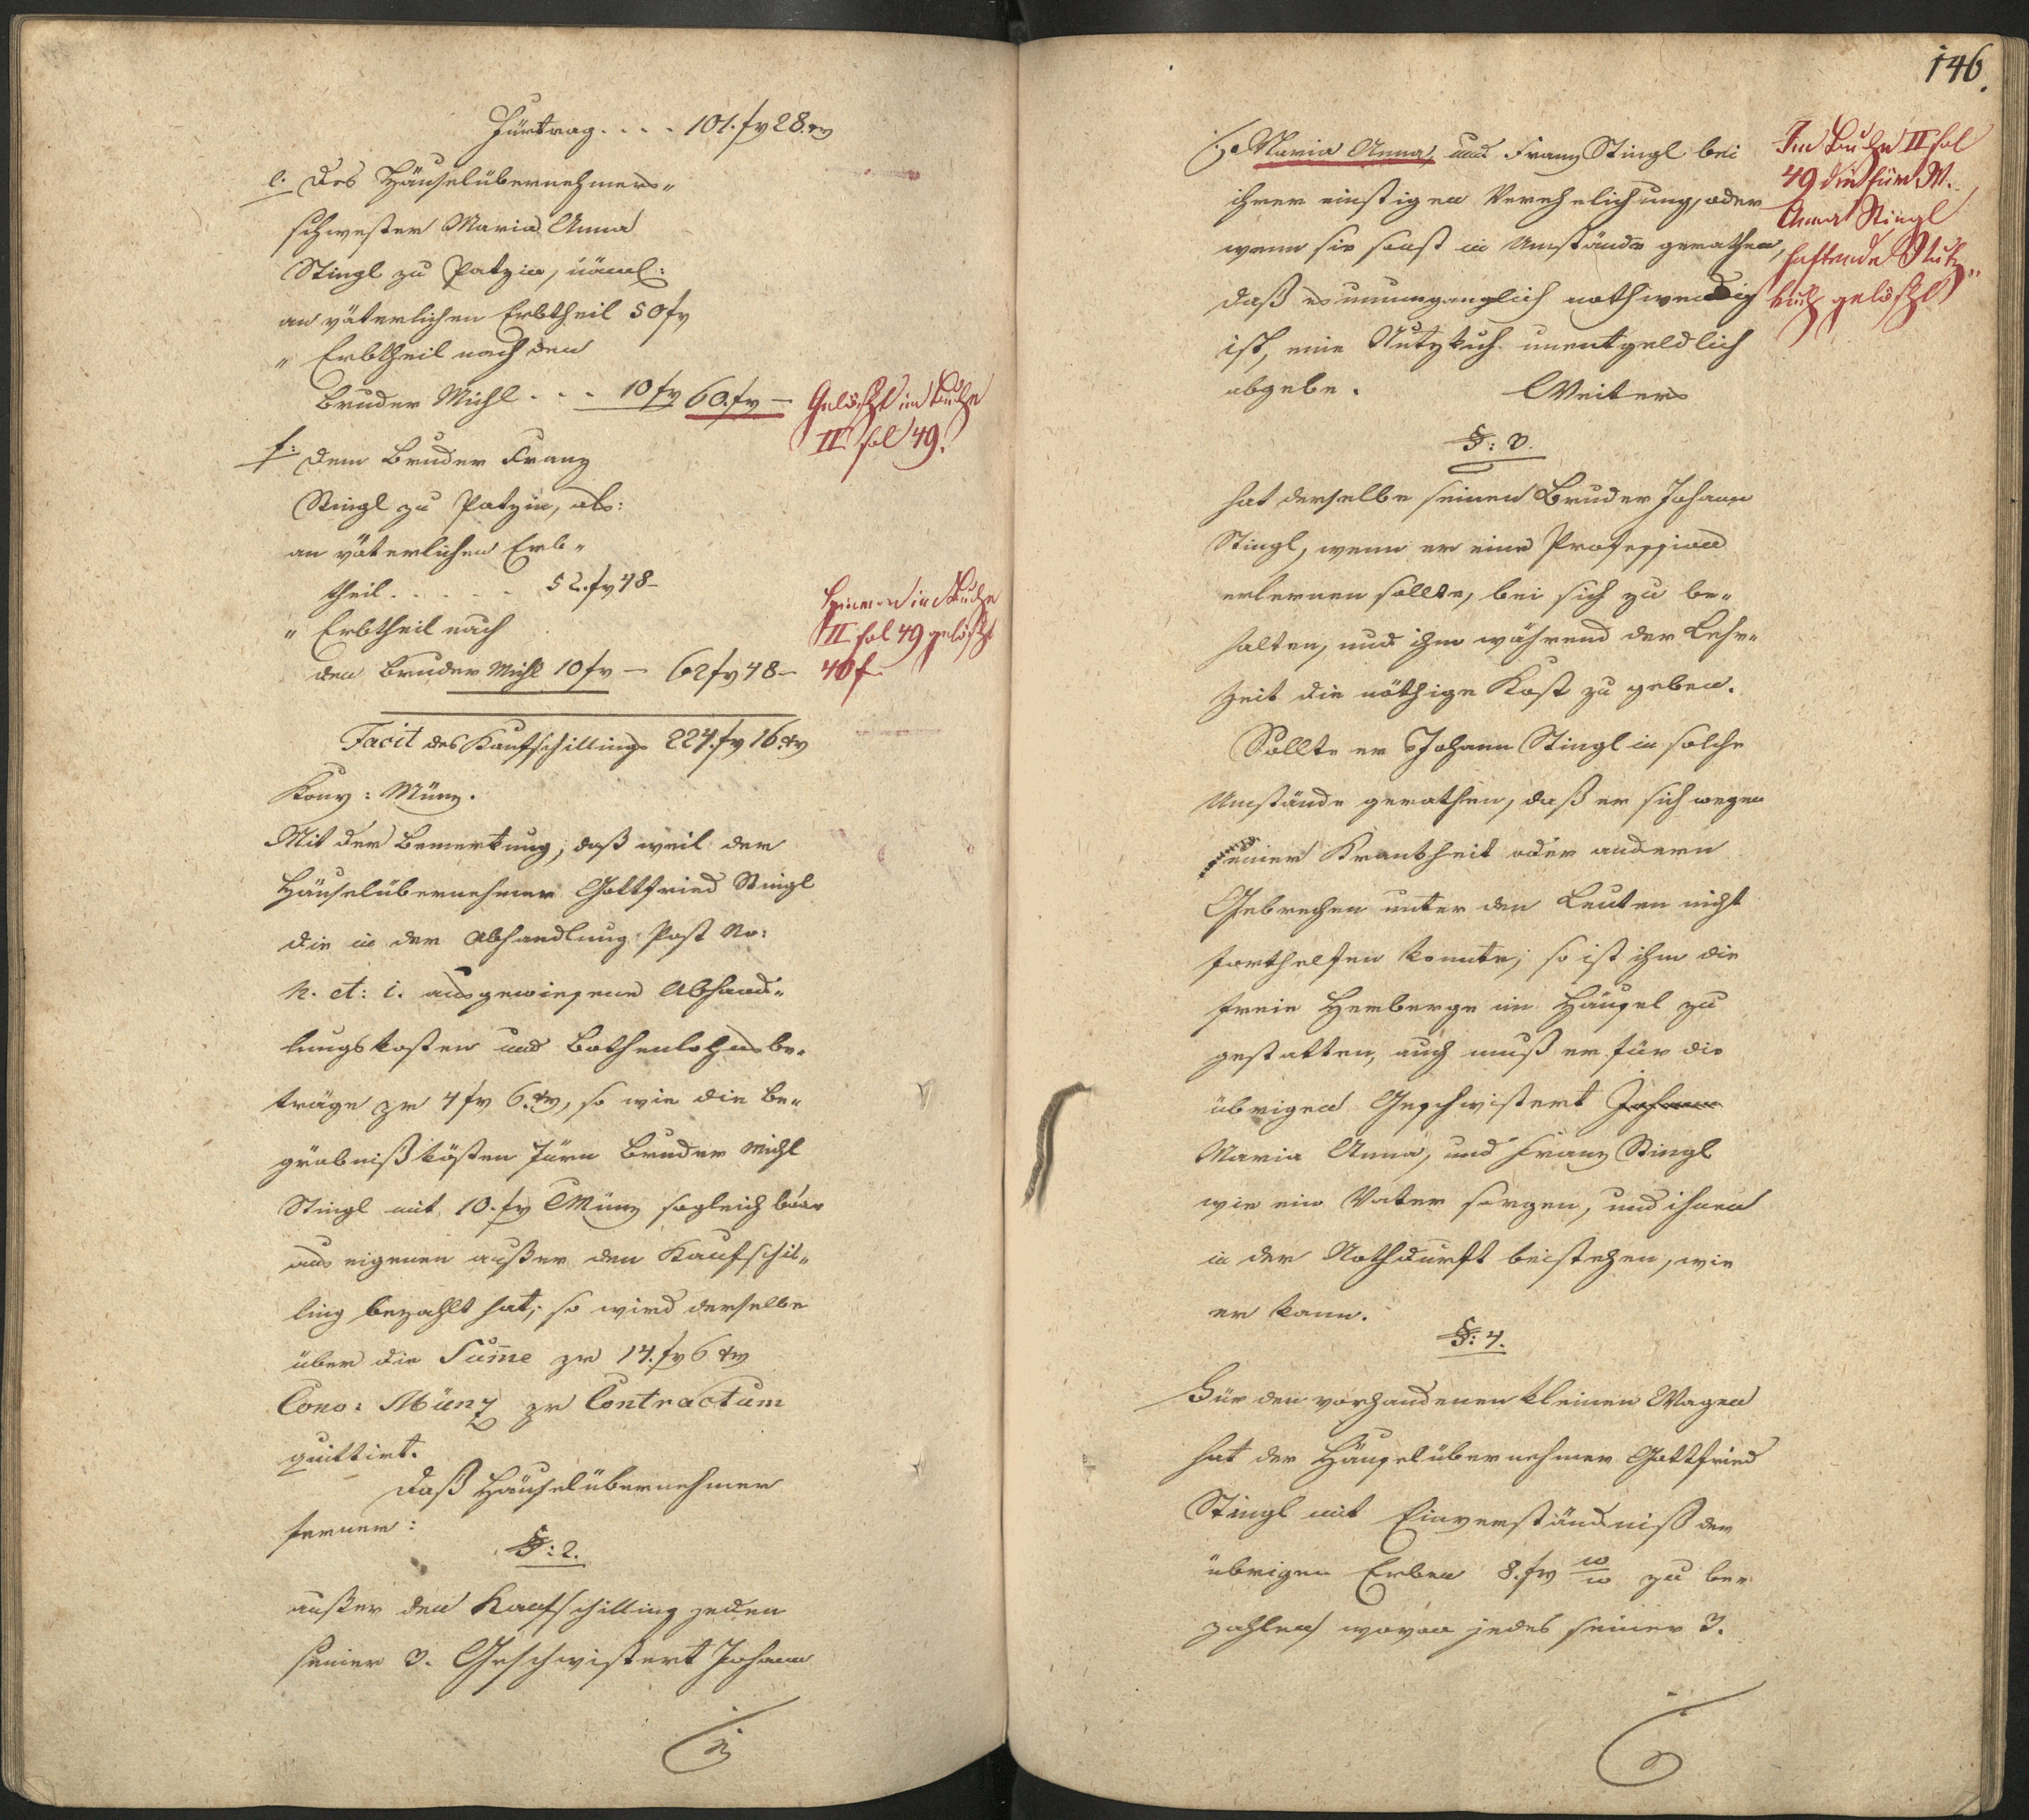 Fürtrag . . . . 101. fr 28. xr
e. Des Häuselübernehmers„
schwester Maria Anna
Stingl zu Patzin, näml:
an väterlichen Erbtheil 50 fr
„ Erbtheil nach den
Bruder Michl . . . 10 fr 60. fr —
Gelöscht im Buche
II fol 49.
f: Dem Bruder Franz
Stingl zu Patzin, als:
an väterlichen Erb„
theil . . . . . 52. fr 48 —
„ Erbtheil nach
den Bruder Michl 10 fr — 62 fr 48 —
im Buche
II fol 49 gelöscht
40 f
Facit des Kaufschillings 224. fr 16 xr
Konv: Münz.
Mit der Bemerkung, daß weil der
Häuselübernehmer Gottfried Stingl
die in der Abhandlung Post No:
h. et: i. ausgewiesene Abhand„
lungskosten und Bothenlohnsbe„
träge pr 4 fr 6. xr, so wie die Be„
gräbnißkösten fürn Bruder Michl
Stingl mit 10. fr CMünz sogleich baar
aus eigenen außer den Kaufschil„
ling bezahlt hat; so wird derselbe
über die Sum̅e pr 14. fr 6 xr
Conv: Münz pr Contractum
quittirt.
Daß Häuselübernehmer
ferner:
§: 2.
außer den Kaufschilling jeden
seiner 3. Geschwistert Johann
146.
Maria Anna, und Franz Stingl bei
ihrer einstigen Verehelichung, oder
wenn sie sonst in Umstände gerathen,
daß es unumganglich nothwendig
ist, eine Nutzkuh unentgeldlich
abgebe. Weiters
Im Buche II fol
49 die für M.
Anna Stingl
haftende Nutz„
kuh gelöscht
§: 3.
hat derselbe seinen Bruder Johann
Stingl, wenn er eine Profession
erlernen sollte, bei sich zu be„
halten, und ihm während der Lehr„
zeit die nöthige Kost zu geben.
Sollte er Johann Stingl in solche
Umstände gerathen, daß er sich wegen
einer Krankheit oder andern
Gebrechen unter den Leuten nicht
forthelfen konnte; so ist ihm die
freie Herberge im Häusel zu
gestatten, auch muß er für die
übrigen Geschwistert Johann
Maria Anna, und Franz Stingl
wie ein Vater sorgen, und ihnen
in der Nothdurft beistehen, wie
er kann.
§: 4.
Für den vorhandenen kleinen Wagen
hat der Häuselübernehmer Gottfried
Stingl mit Einverständniß der
übrigen Erben 8. fr zu be„
zahlen, wovon jedes seiner 3.